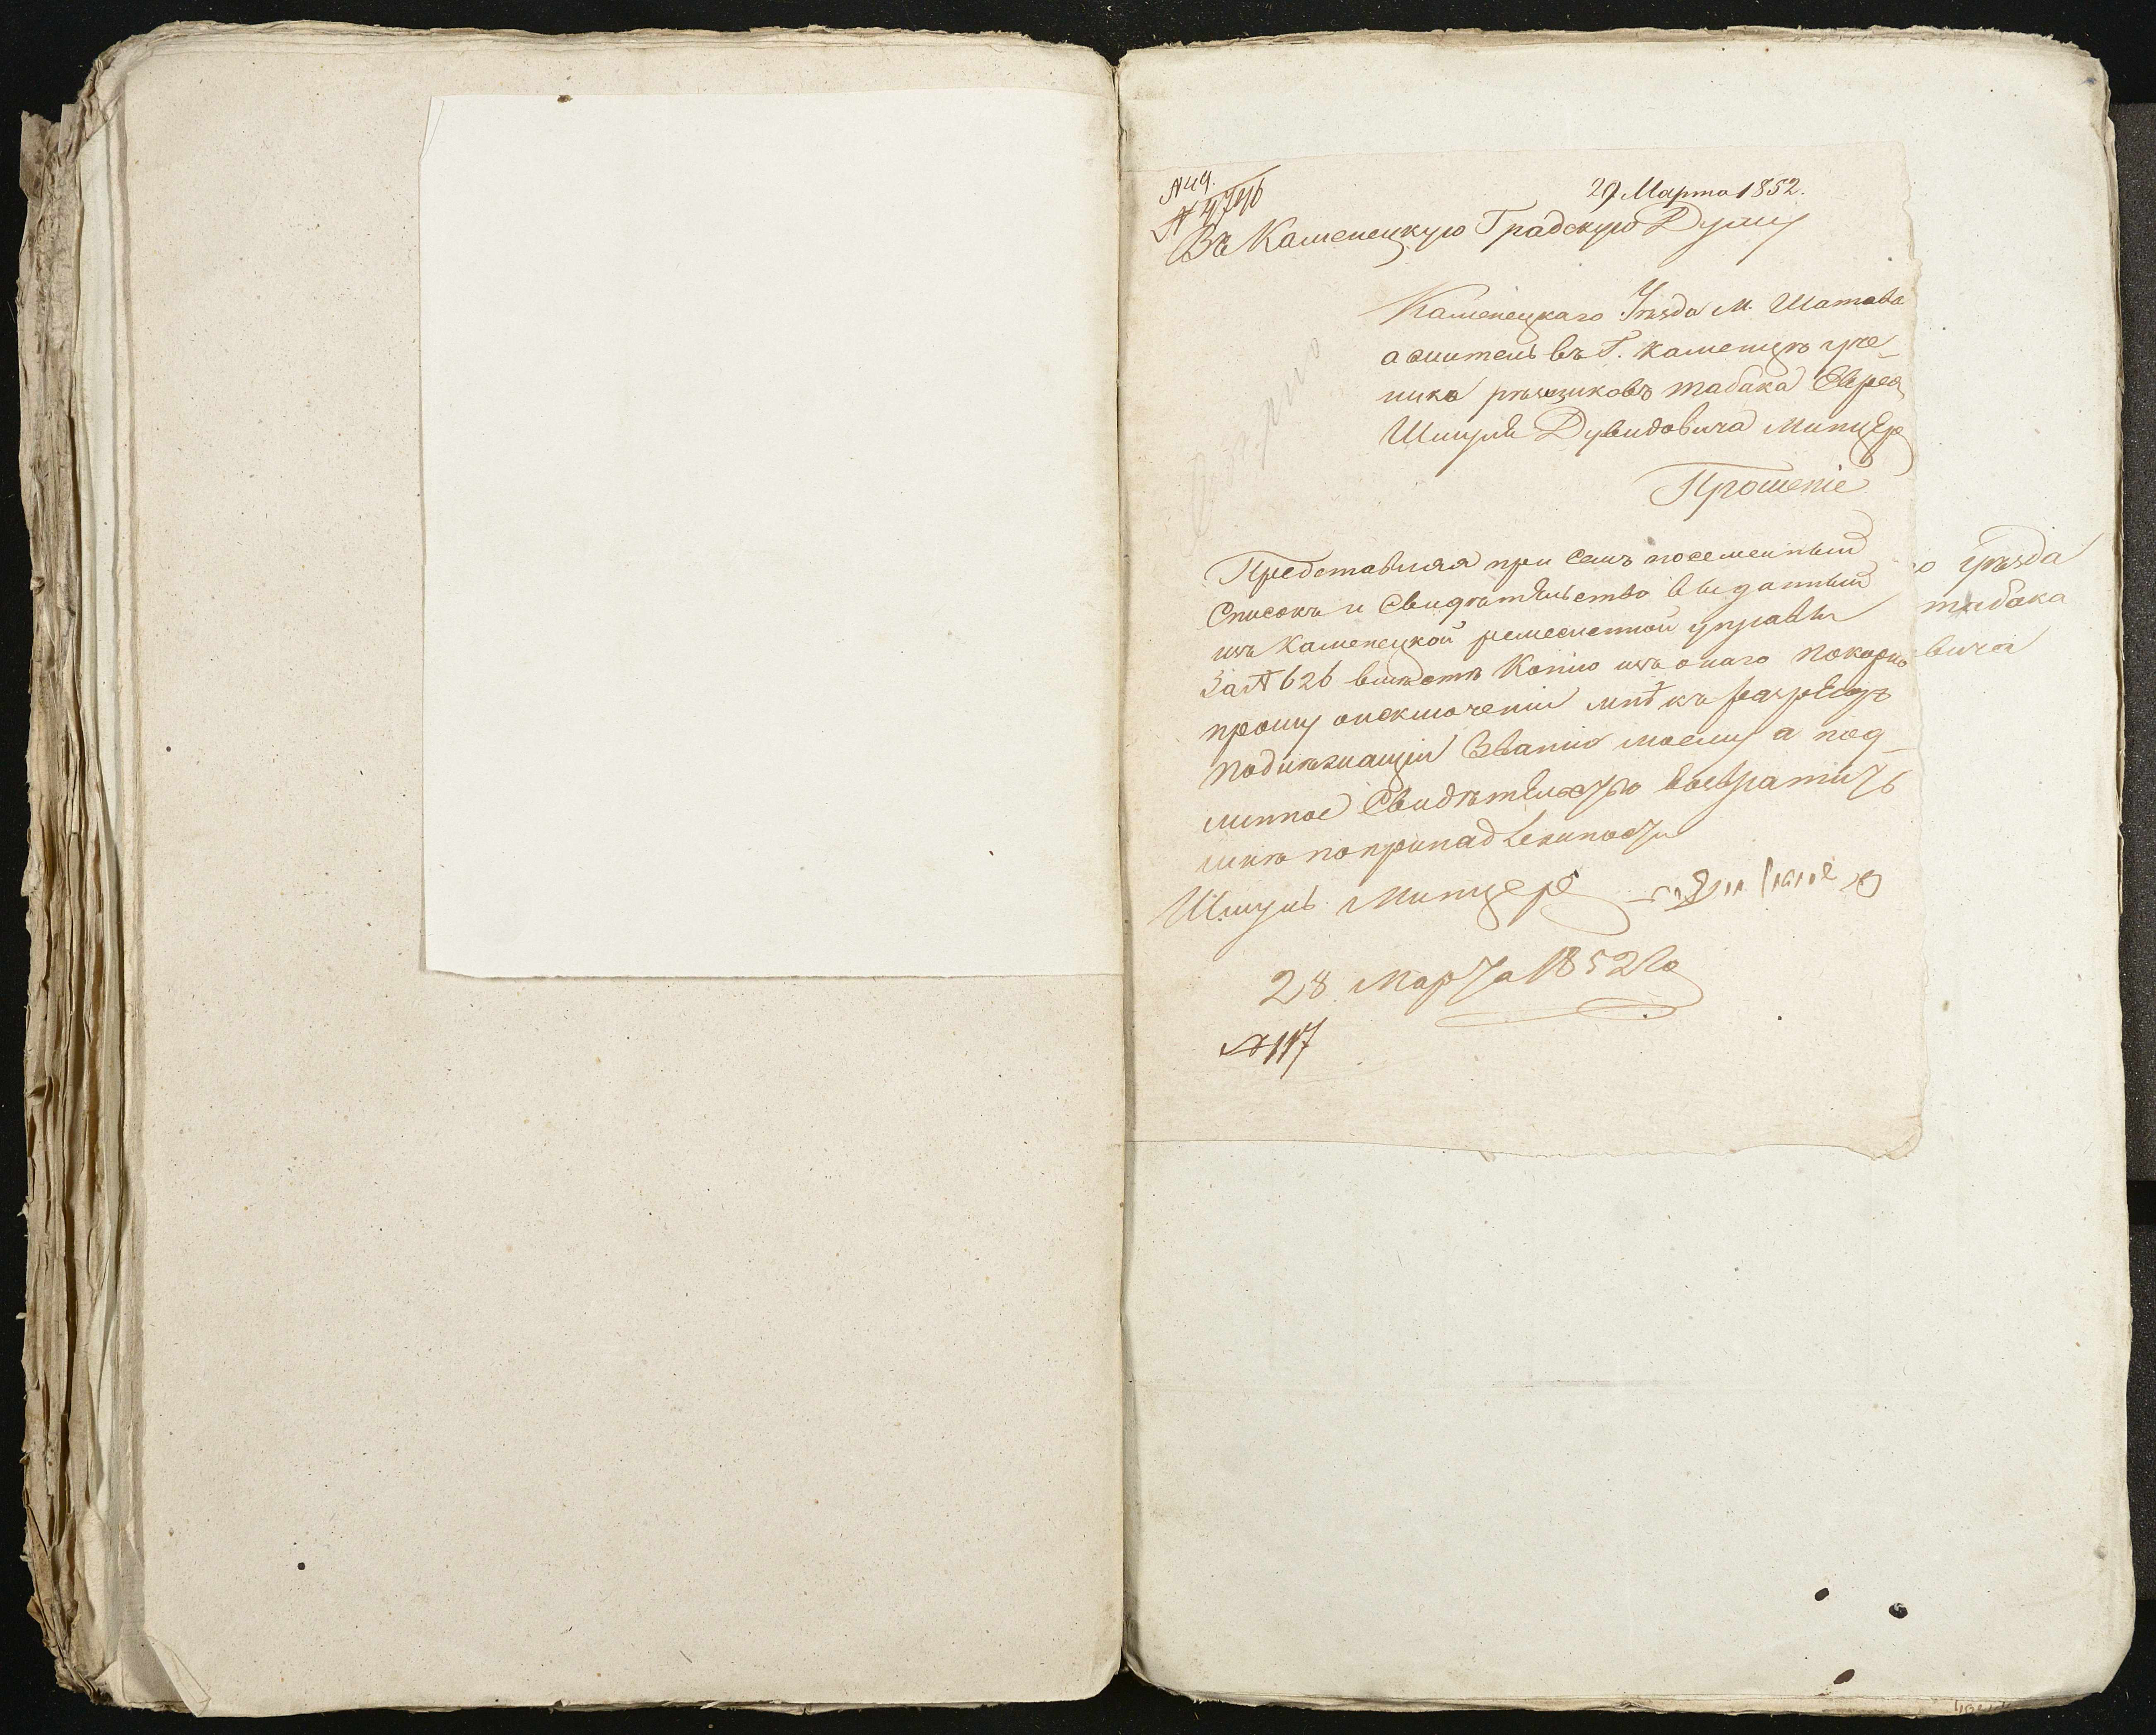 № 49.
29 Марта 1852.
Въ Каменецкую Градскую Думу
Каменецкаго Уѣзда М. Шатава
а житель въ Г. Каменцѣ уче-
ника рѣщиковъ табака Еврея
Шмуля Дувидовича Минцер
Прошеніе
Представляя при семъ посемейный
Списокъ и Свидѣтельство выданный
изъ Каменецкой ремесленной управы
За № 626 вмѣстѣ Копию изъ онаго покорно
прошу о
подлѣжащій Званию моему а под-
линное Свидѣтельство возвратить
мнѣ по принадлежности
Шмуль Минцеръ
28 Марта 1852 го
№ 117
о уѣзда
табака
вича